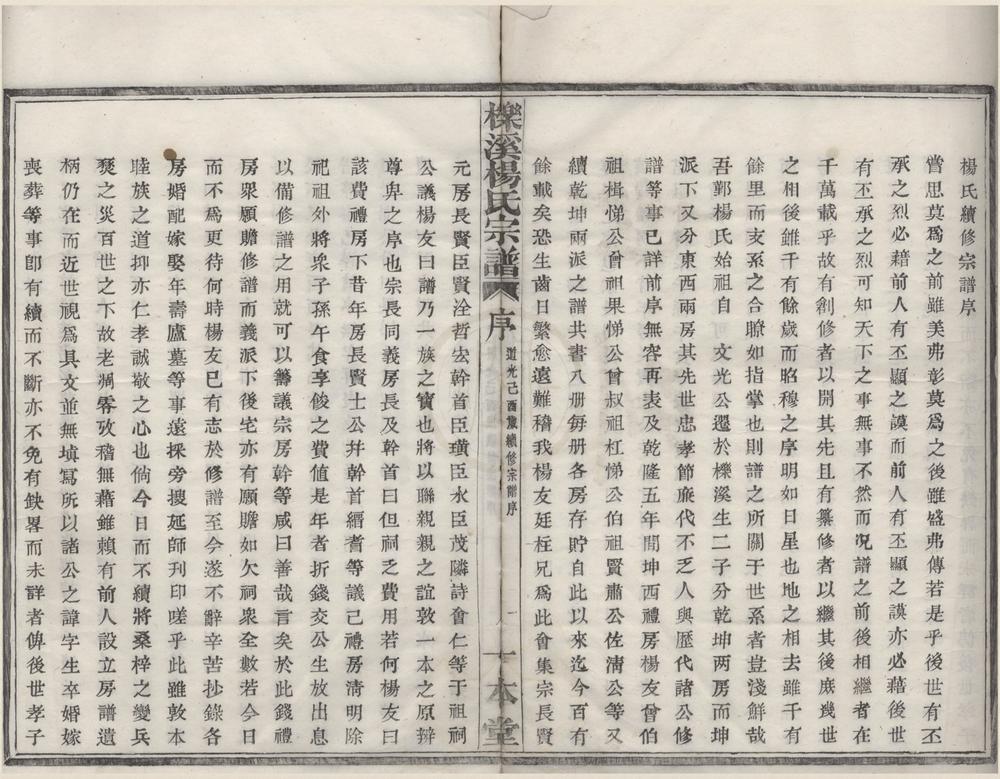 楊氏續修宗譜序
嘗思莫爲之前雖美弗彰莫爲之後雖盛弗傳若是乎後世有丕
承之烈必藉前人有丕顯之謨而前人有丕顯之謨亦必藉後世
有丕承之烈可知天下之事無事不然而况譜之前後相繼者在
千萬載乎故有創修者以開其先且有纂修者以繼其後庶幾世
之相後雖千有餘歲而昭穆之序明如日星也地之相去雖千有
餘里而支系之合瞭如指掌也則譜之所關于世系者豈淺鮮哉
吾鄞楊氏始祖自 文光公遷於櫟溪生二子分乾坤两房而坤
派下又分東西兩房其先世忠孝節廉代不乏人與歷代諸公修
譜等事已詳前序無容再表及乾隆五年間坤西禮房楊友曾伯
祖楫悌公曾祖果悌公曾叔祖杠悌公伯祖賢肅公佐淸公等又
續乾坤兩派之譜共書八册每册各房存貯自此以來迄今百有
餘載矣恐生齒日繁愈遠難稽我楊友廷枉兄爲此會集宗長賢
櫟溪楊氏宗譜 序 道光己酉歲續修宗譜序 一 一本堂
元房長賢臣賢淦哲宏幹首臣璜臣水臣茂隣詩會仁等于祖祠
公議楊友曰譜乃一族之寳也將以聯親親之誼敦一本之原辨
尊卑之序也宗長同義房長及幹首曰但祠乏費用若何楊友曰
該費禮房下昔年房長賢士公幷幹首縉耆等議己禮房淸明除
祀祖外將衆子孫午食享餕之費值是年者折錢交公生放出息
以備修譜之用就可以籌議宗房幹等咸曰善哉言矣於此錢禮
房衆願贍修譜而義派下後宅亦有願贍如欠祠衆全數若今日
而不爲更待何時楊友巳有志於修譜至今遂不辭辛苦抄錄各
房婚配嫁娶年壽廬墓等事遠採旁搜延師刋印嗟乎此雖敦本
睦族之道抑亦仁孝誠敬之心也倘今日而不續將桑梓之變兵
燹之災百世之下故老凋零攷稽無藉雖賴有前人設立房譜遺
柄仍在而近世視爲具文並無塡寫所以諸公之諱字生卒婚嫁
喪葬等事卽有續而不斷亦不免有缺畧而未詳者俾後世孝子